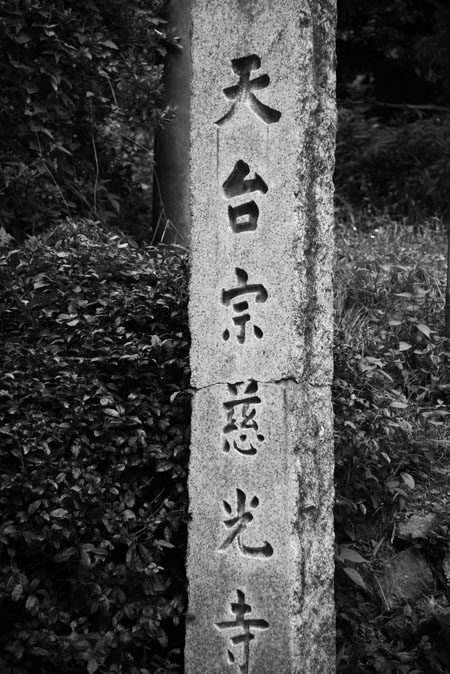 天台宗慈光寺